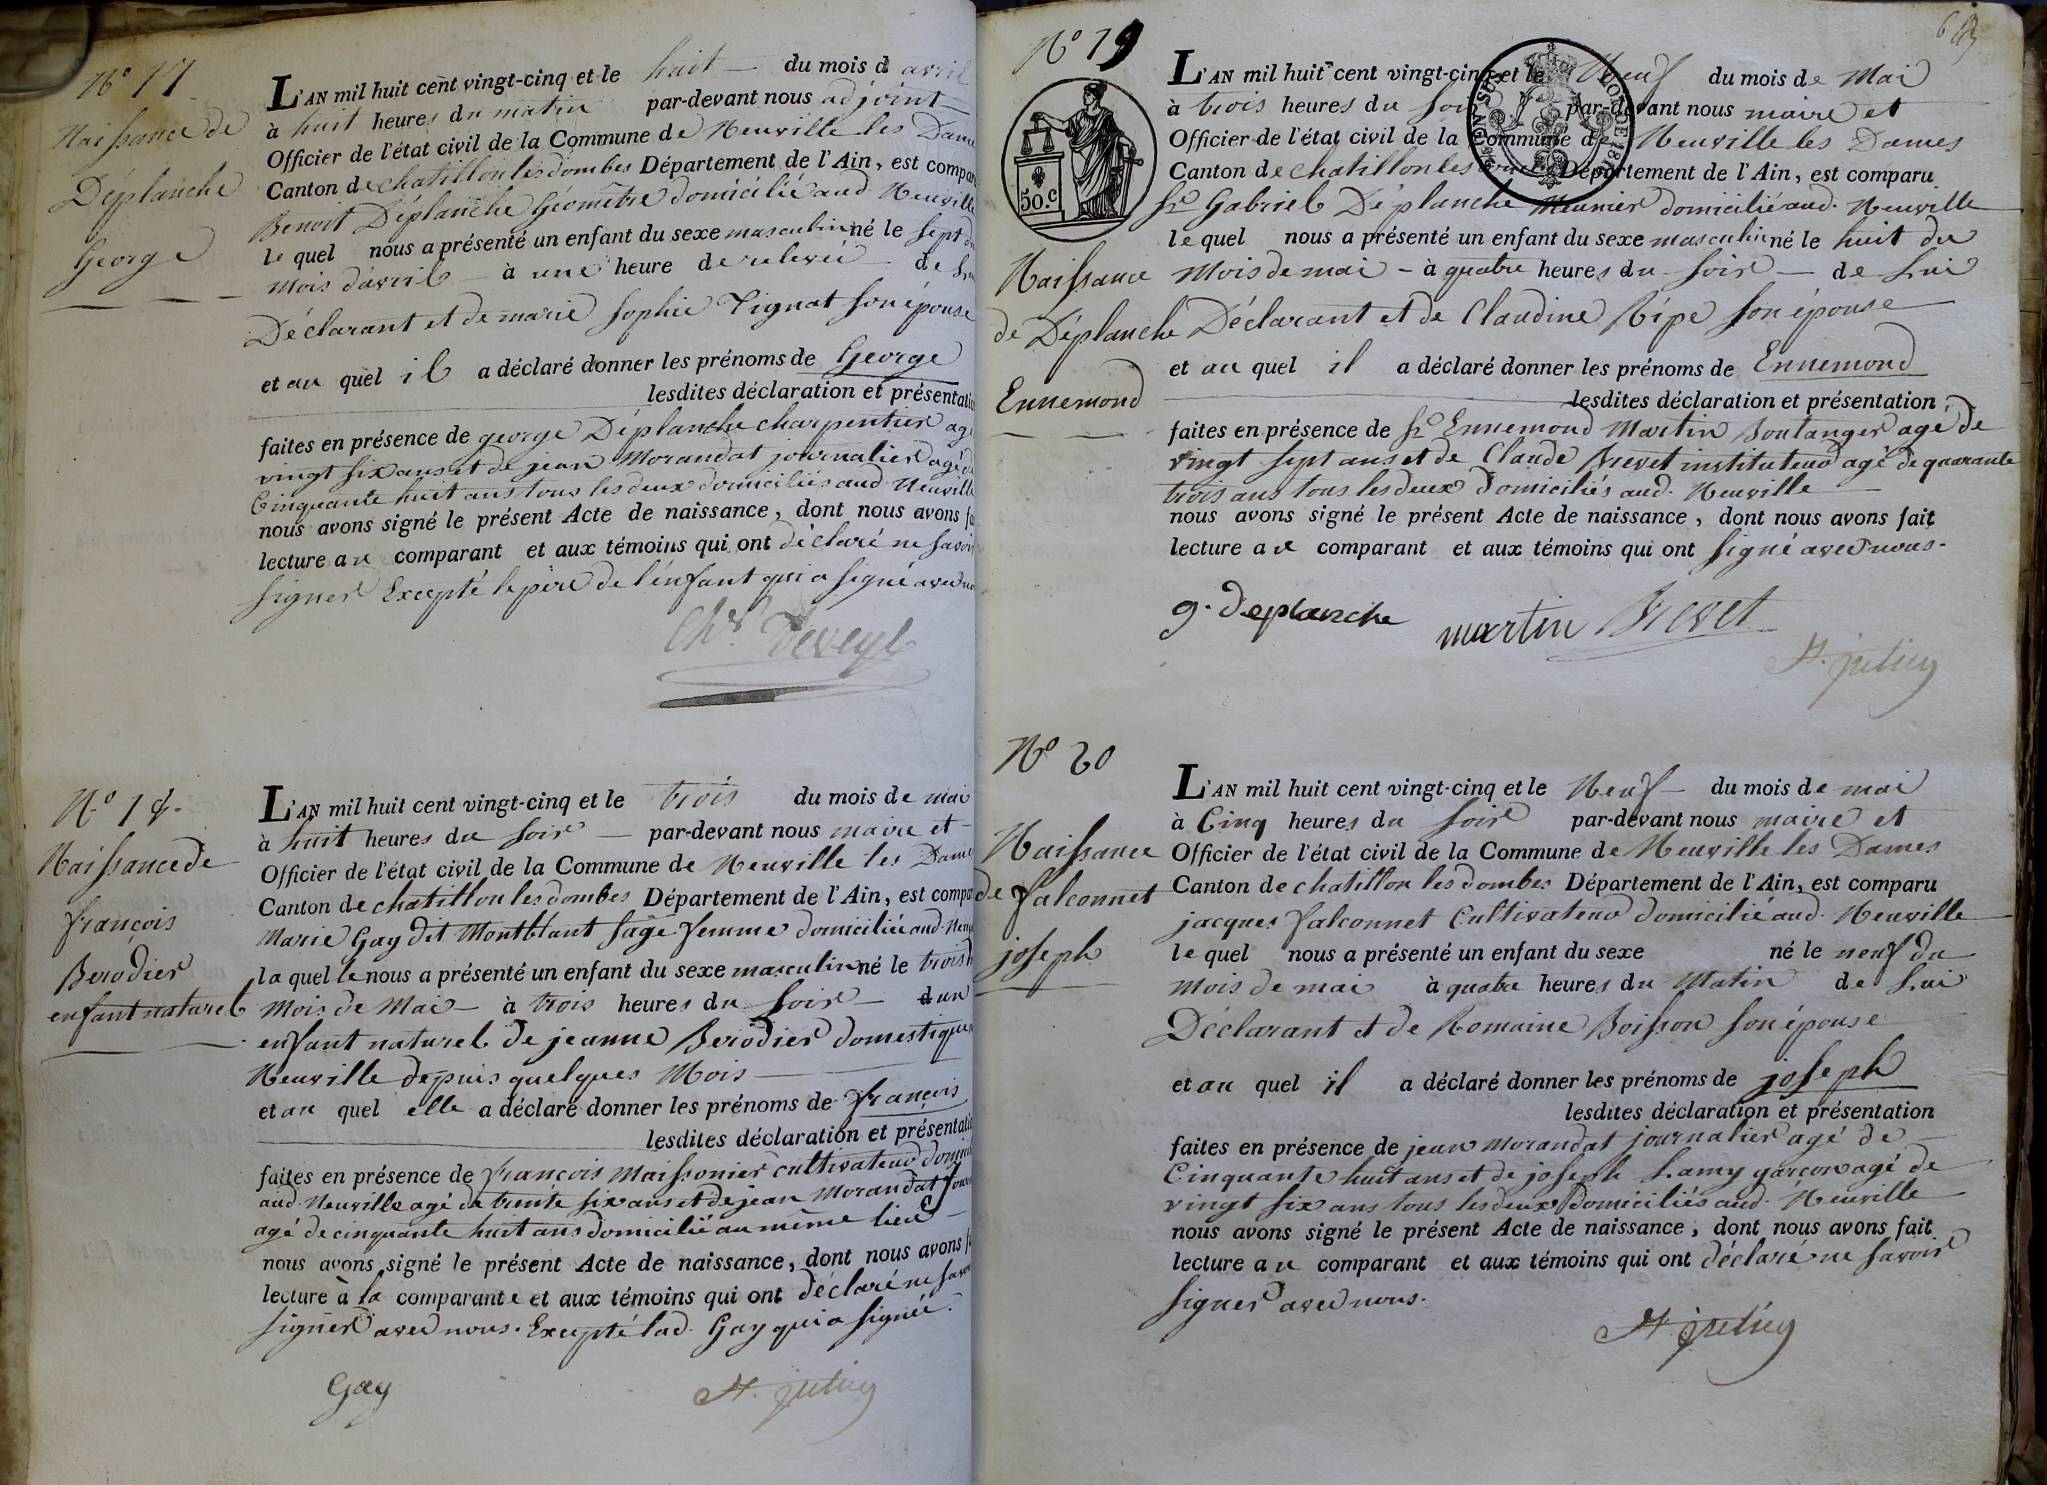 N° 17
Naissance de
Déplanche
George
L'AN mil huit cent vingt-cinq et le huit du mois d avril
à huit heures du matin par-devant nous adjoint
Officier de l'état civil de la Commune de Neuville les Dames
Canton de chatillon les dombes Département de l'Ain, est compar
Benoit Déplanche Géomêtre domicilié aud. Neuville
le quel nous a présenté un enfant du sexe masculin né le sept du
mois d'avril à une heure de relevée de Lui
Déclarant et de marie Sophie Tignat son épouse
et au quel il a déclaré donner les prénoms de George
lesdites déclaration et présentation
faites en présence de george Déplanche charpentier agé
vingt six ans et de jean Morandat journalier agé de
Cinquante huit ans tous les deux domiciliés aud. Neuville
nous avons signé le présent Acte de naissance, dont nous avons fa
lecture au comparant et aux témoins qui ont déclaré ne savoir
signer Excepté le père de l'enfant qui a signé avec no
Chs Deveyl
N° 18.
Naissance de
françois
Berodier
enfant naturel
L'AN mil huit cent vingt-cinq et le trois du mois de mai
à huit heures du soir par-devant nous maire et
Officier de l'état civil de la Commune de Neuville les Dames
Canton de chatillon les dombes Département de l'Ain, est compar
Marie Gay dit Montblant sage femme domiciliée aud. Neu
la quelle nous a présenté un enfant du sexe masculin né le trois d
mois de Mai à trois heures du soir d'un
enfant naturel de jeanne Berodier domestique
Neuville depuis quelques Mois
et au quel elle a déclaré donner les prénoms de françois
lesdites déclaration et présentation
faites en présence de françois Maissonier cultivateur domici
aud. Neuville agé de trente six ans et de jean Morandat jour
agé de cinquante huit ans domicilié au même lieu
nous avons signé le présent Acte de naissance, dont nous avons f
lecture à la comparante et aux témoins qui ont déclaré ne savoir
signer avec nous. Excepté lad. Gay qui a signée.
Gay St. julien
N° 19
50.C
Naissance
de Déplanche
Ennemond
L'AN mil huit cent vingt-cinq et le Neuf du mois de Mai
à trois heures du soir par-devant nous maire et
Officier de l'état civil de la Commune de Neuville les Dames
Canton de chatillon les dombes Département de l'Ain, est comparu
Sr. Gabriel Déplanche Meunier domicilié aud. Neuville
le quel nous a présenté un enfant du sexe masculin né le huit du
Mois de mai à quatre heures du soir de Lui
Déclarant et de Claudine Ripe son épouse
et au quel il a déclaré donner les prénoms de Ennemond
lesdites déclaration et présentation
faites en présence de Sr. Ennemond Martin Boulanger agé de
vingt sept ans et de Claude Brevet instituteur agé de quarante
trois ans tous les deux Domiciliés aud. Neuville
nous avons signé le présent Acte de naissance, dont nous avons fait
lecture au comparant et aux témoins qui ont signé avec nous.
g. Deplanche martin Brevet
St. julien
N° 20
Naissance
de falconnet
joseph
L'AN mil huit cent vingt-cinq et le Neuf du mois de mai
à Cinq heures du soir par-devant nous maire et
Officier de l'état civil de la Commune de Neuville les Dames
Canton de chatillon les dombes Département de l'Ain, est comparu
jacques falconnet Cultivateur domicilié aud. Neuville
le quel nous a présenté un enfant du sexe né le neuf du
mois de mai à quatre heures du Matin de Lui
Déclarant et de Romaine Boisson son épouse
et au quel il a déclaré donner les prénoms de joseph
lesdites déclaration et présentation
faites en présence de jean Morandat journalier agé de
Cinquante huit ans et de joseph Lamy garçon agé de
vingt six ans tous les deux domiciliés aud. Neuville
nous avons signé le présent Acte de naissance, dont nous avons fait
lecture au comparant et aux témoins qui ont déclaré ne savoir
signer avec nous.
St. julien